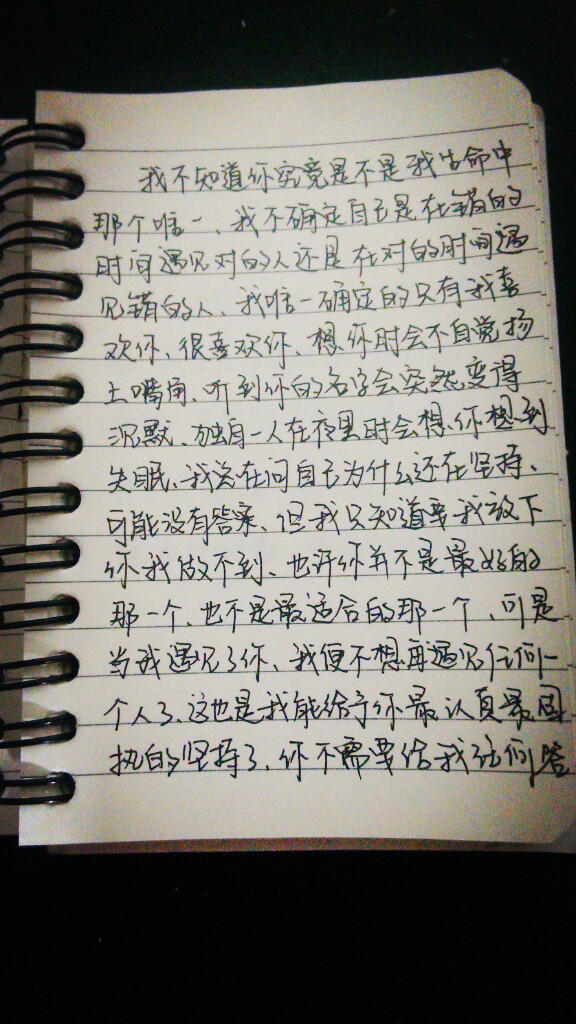 我不知道你究竟是不是我生命中
那个唯一、我不确定自己是在错的
时间遇见对的人还是在对的时间遇
见错的人、我唯一确定的只有我喜
欢你、很喜欢你、想你时会不自觉扬
上嘴角、听到你的名字会突然变得
沉默、独自一人在夜里时会想你想到
失眠、我总在问自己为什么还在坚持、
可能没有答案、但我只知道要我放下
你我做不到、也许你并不是最好的
那一个、也不是最适合的那一个、可是
当我遇见了你、我便不想再遇见任何一
个人了、这也是我能给予你最认真最固
执的坚持了、你不需要给我任何答